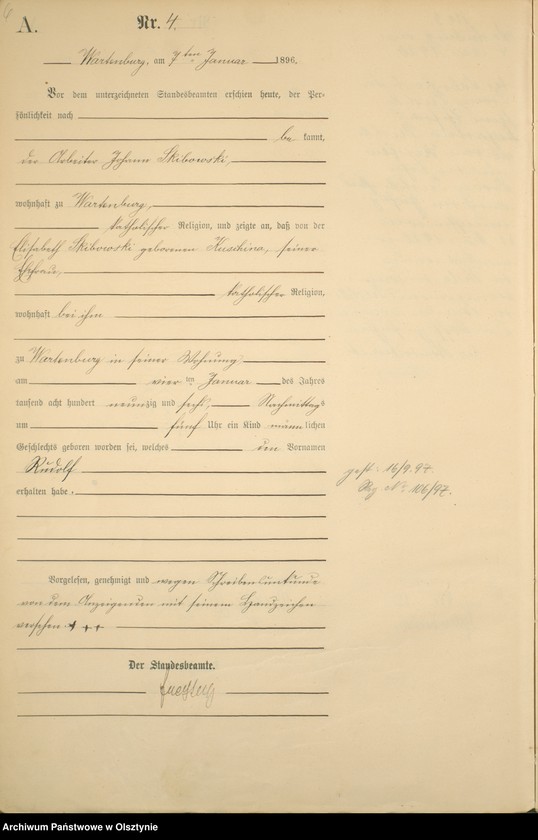 A.
Nr. 4.
Wartenburg, am 7ten Januar 1896.
Vor dem unterzeichneten Standesbeamten erschien heute, der Per-
sönlichkeit nach
bekannt,
der Arbeiter Johann Skibowski,
wohnhaft zu Wartenburg,
katholischer Religion, und zeigte an, daß von der
Elisabeth Skibowski geborenen Kuschina, seiner
Ehefrau,
katholischer Religion,
wohnhaft bei ihm
zu Wartenburg in seiner Wohnung
am vierten Januar des Jahres
tausend acht hundert neunzig und sechs, Nachmittags
um fünf Uhr ein Kind männlichen
Geschlechts geboren worden sei, welches den Vornamen
Rudolf
gest. 16/9. 97.
erhalten habe.
Rg No 106/97.
Vorgelesen, genehmigt und wegen Schreibensunkunde
von dem Anzeigenden mit seinem Handzeichen
versehen +++
Der Standesbeamte.
Archiwum Państwowe w Olsztynie